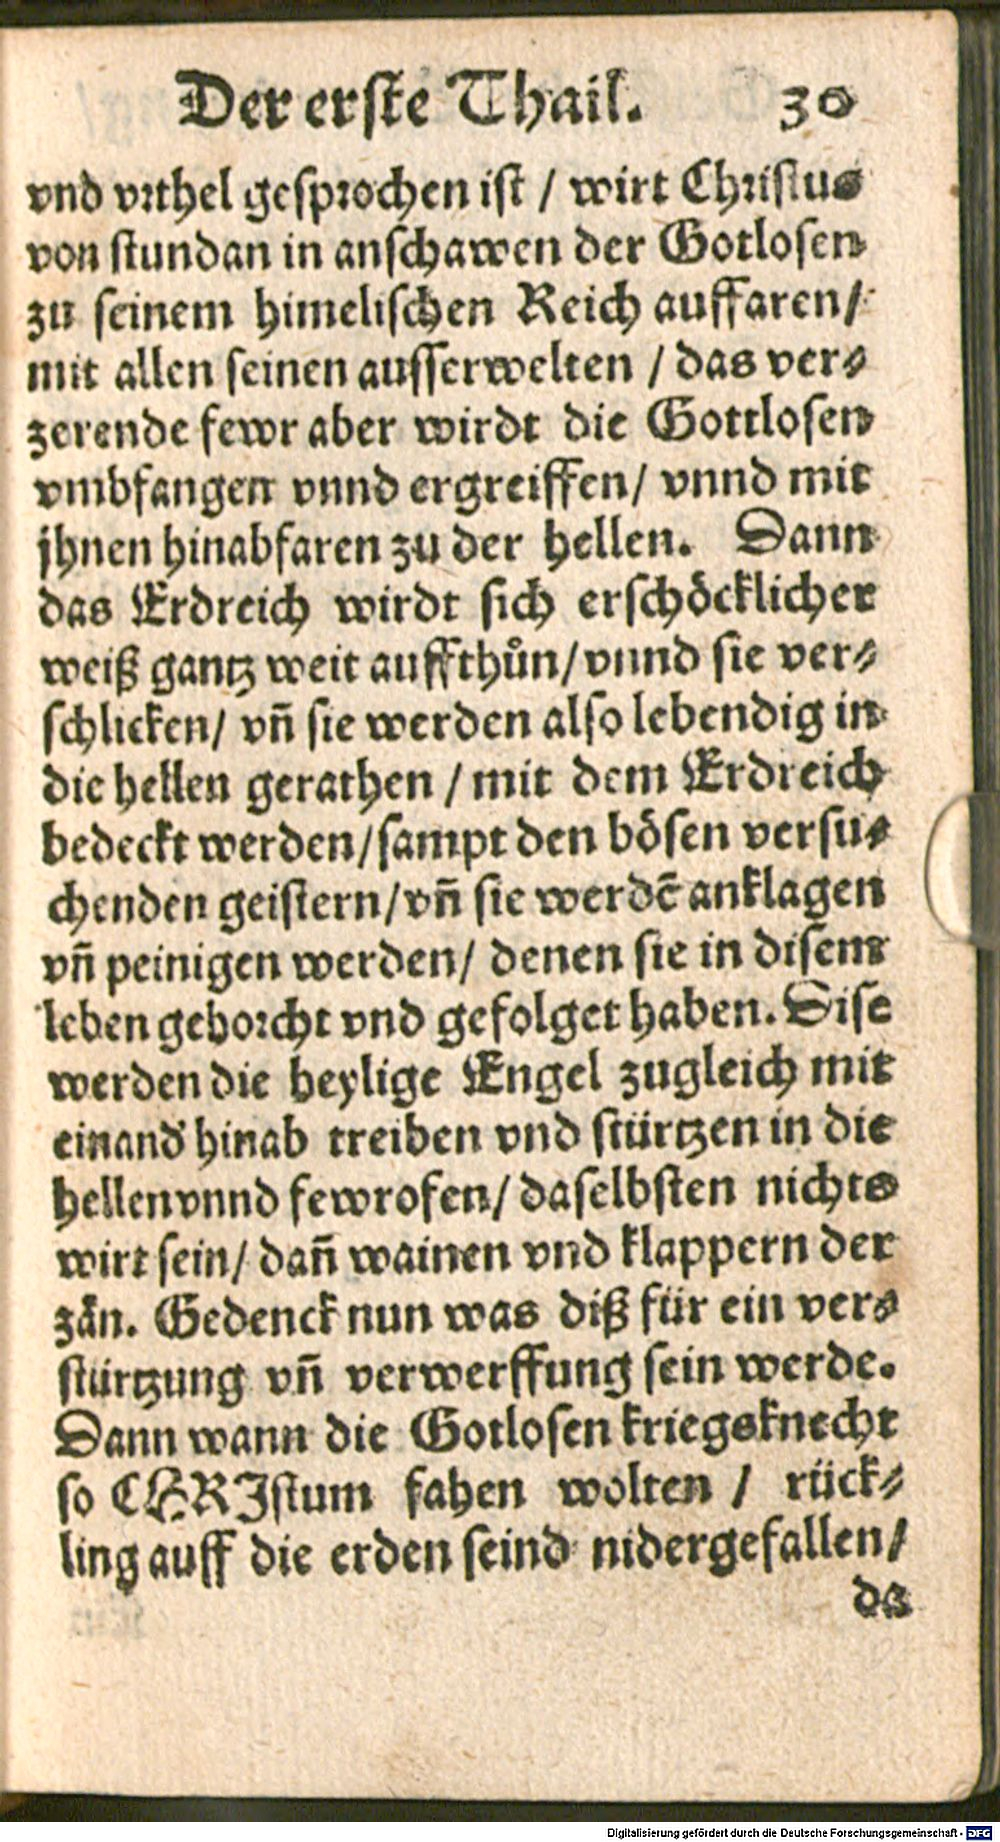 Der erste Thail. 30
vnd vrthel gesprochen ist / wirt Christus
von stundan in anschawen der Gotlosen
zu seinem himelischen Reich auffaren/
mit allen seinen ausserwelten / das ver⸗
zerende fewr aber wirdt die Gottlosen
vmbfangen vnnd ergreiffen/ vnnd mit
jhnen hinabfaren zu der hellen. Dann
das Erdreich wirdt sich erschöcklicher
weiß gantz weit auffthůn/vnnd sie ver⸗
schlicken/ vñ sie werden also lebendig in
die hellen gerathen / mit dem Erdreich
bedeckt werden/sampt den bösen versu⸗
chenden geistern/vñ sie werdē anklagen
vñ peinigen werden/ denen sie in disem
leben gehorcht vnd gefolget haben. Dise
werden die heylige Engel zugleich mit
einand' hinab treiben vnd stürtzen in die
hellen vnnd fewrofen/ daselbsten nichts
wirt sein/ dañ wainen vnd klappern der
zän. Gedenck nun was diß für ein ver⸗
stürtzung vñ verwerffung sein werde.
Dann wann die Gotlosen kriegsknecht
so CHRIstum fahen wolten / rück⸗
ling auff die erden seind nidergefallen/
da
Digitalisierung gefördert durch die Deutsche Forschungsgemeinschaft - DFG